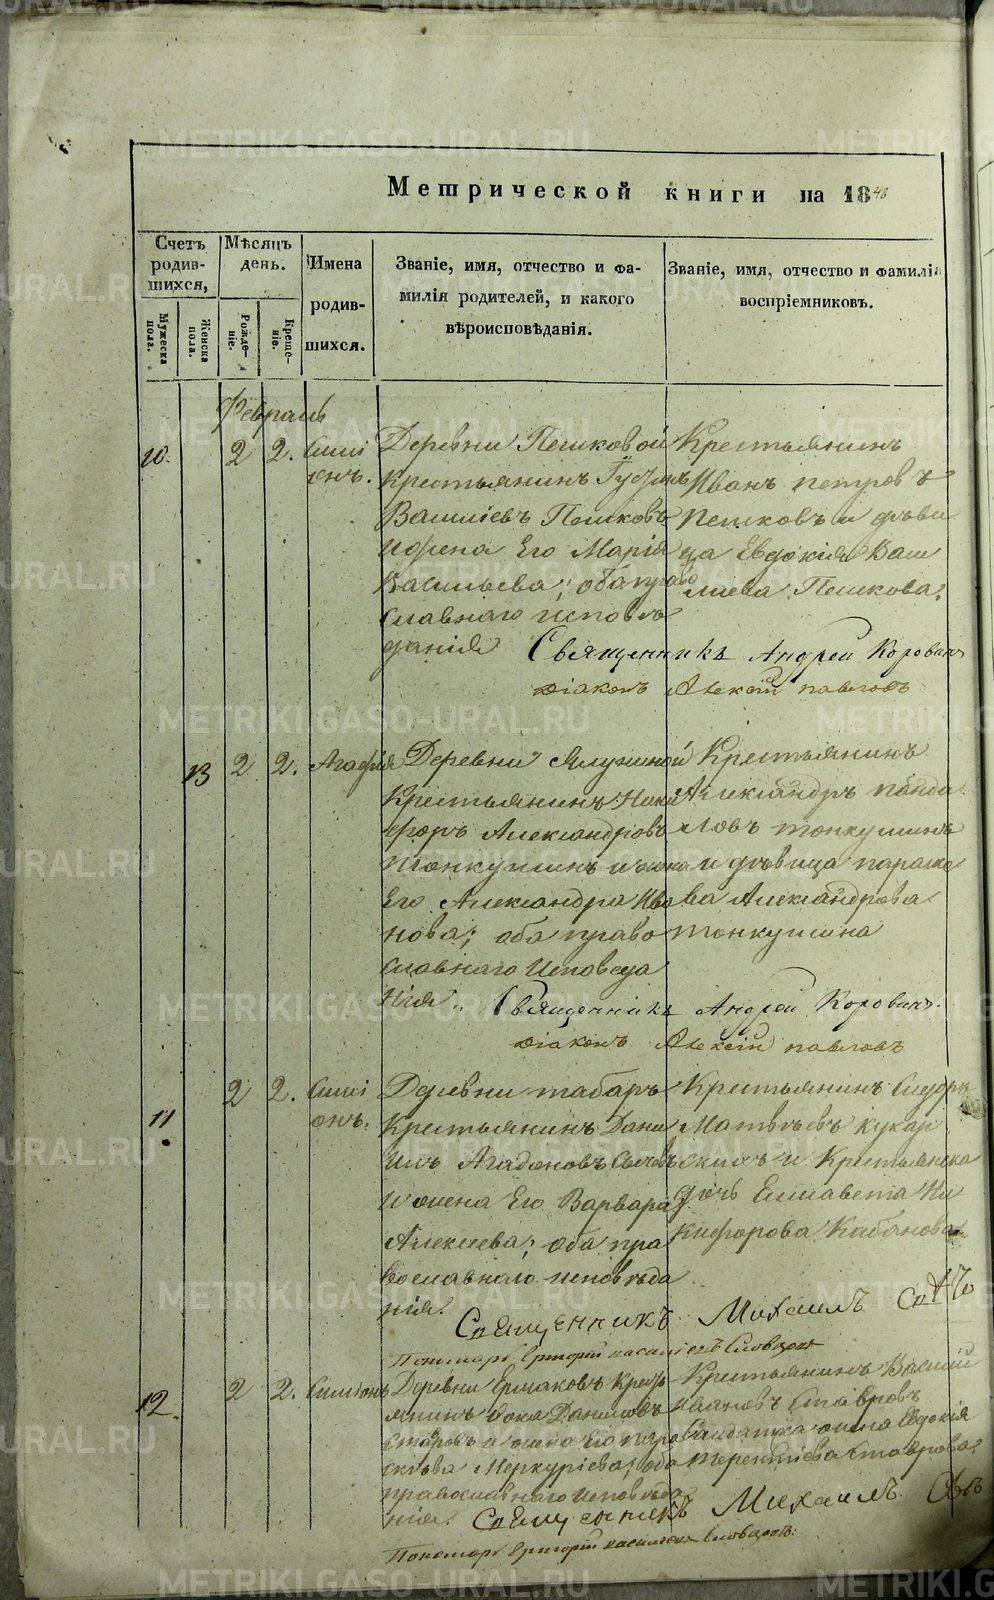 METRIKI.GASO-URAL.RU
Метрической книги на 1848
Счетъ родившихся,
Мѣсяцъ день.
Имена родившихся.
Званіе, имя, отчество и фамилія родителей, и какого вѣроисповѣданія.
Званіе, имя, отчество и фамилія воспріемниковъ.
Мужеска пола.
Женска пола.
Рожденіе.
Крещеніе.
Февраль
10. 2 2. Симі
онъ.
Деревни Пешковой
крестьянинъ
Василіевъ Пешковъ
и жена Его Марія
Васильева; оба право
славнаго исповѣ
данія
Крестьянинъ
Иванъ петровъ
Пешковъ и дѣви
ца Евдокія Васи
лиева Пешкова.
Священникъ Андрей Коровин
діаконъ Алексій павловъ
13 2 2. Агафія
Деревни
Крестьянинъ Ники
форъ Александровъ
Тонкушинъ и жена
Его Александра Ива
нова; оба право
славнаго Исповеда
нія
Крестьянинъ
Александръ
ловъ тонкушинъ
и дѣвица параско
ва Александрова
тонкушина
Священникъ Андрей Коровинъ.
діаконъ Алексій павловъ
11 2 2. Симі
онъ.
Деревни табаръ
Крестьянинъ Дани
илъ
и жена Его Варвара
Алексеева; оба пра
вославнаго исповѣда
нія.
Крестьянинъ Сидоръ
Матвѣевъ кукар
скихъ и Крестьянска
дочь Елисавета Ни
кифорова Кабанова
Священникъ Михаилъ
Пономарь Григорій Словцовъ
12. 2 2. Симіонъ
Деревни Ермаковъ Крест
янинъ Фока Даниловъ
Ставровъ и жена Его
Меркуріева; оба
православнаго исповѣда
нія.
Крестьянинъ Василій
Ивановъ Ставровъ
и жена Евдокія
Терентіева Ставрова.
Священникъ Михаилъ
Пономарь Григорій Словцовъ.